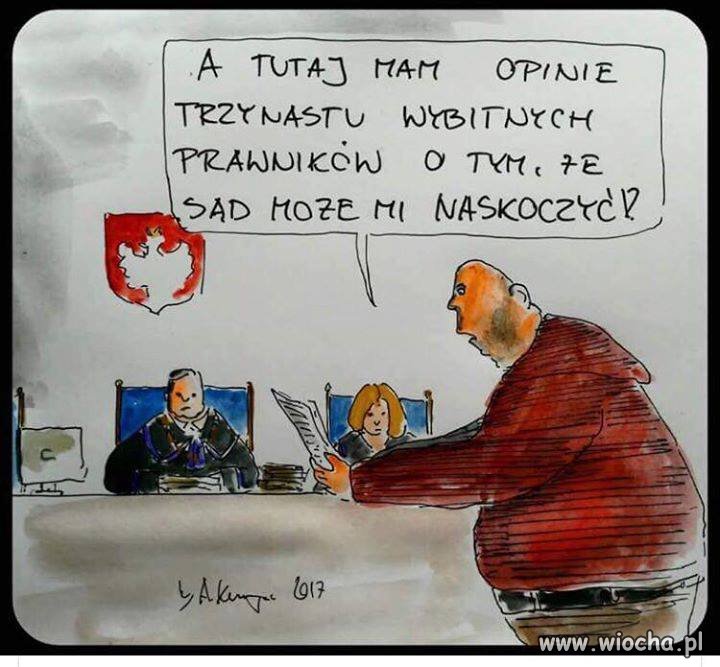 A TUTAJ MAM OPINIE
TRZYNASTU WYBITNYCH
PRAWNIKÓW O TYM, ŻE
SĄD MOŻE MI NASKOCZYĆ!?
2017
www.wiocha.pl